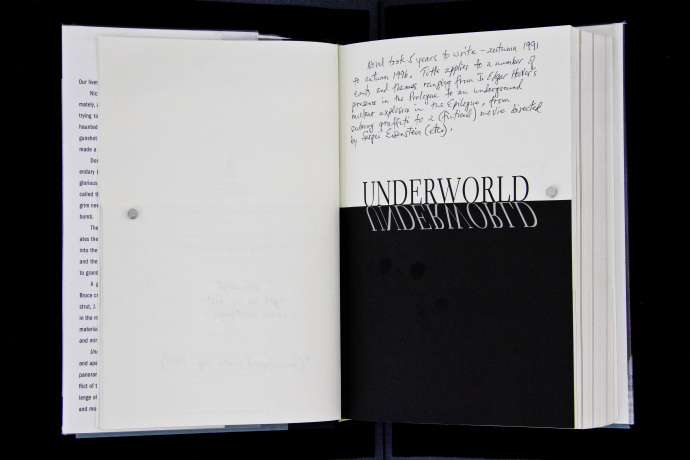 Our lives
Nic
mately, a
trying to
haunted
gunshot
made a
Don
endary
glorious
called t
grim ne
bomb.
The
ates the
into the
and the
to grand
A g
Bruce c
strut, J.
in the m
material
and mi
Un
and apa
panorar
flict of t
lenge of
and mo
Novel took 5 years to write – autumn 1991
to autumn 1996. Title applies to a number of
events and themes ranging from J. Edgar Hoover's
presence in the Prologue to an underground
nuclear explosion in the Epilogue, from
subway graffiti to a (fictional) movie directed
by Sergei Eisenstein (etc).
UNDERWORLD
UNDERWORLD